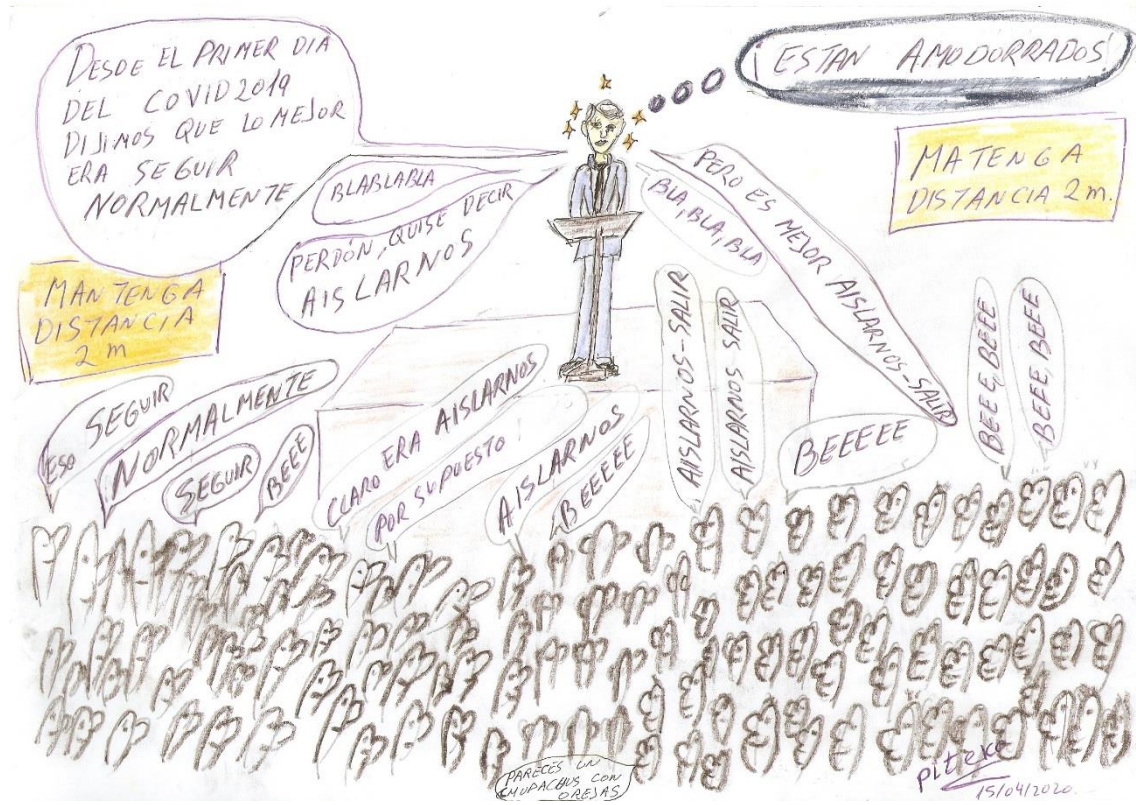 DESDE EL PRIMER DIA
DEL COVID 2019
DIJIMOS QUE LO MEJOR
ERA SEGUIR
NORMALMENTE
¡ESTAN AMODORRADOS!
BLABLABLA
PERDÓN, QUISE DECIR
AISLARNOS
BLA, BLA, BLA
PERO ES MEJOR AISLARNOS-SALIR
MATENGA
DISTANCIA 2 m.
MANTENGA
DISTANCIA
2 m
ESO SEGUIR
NORMALMENTE
SEGUIR
BEEE
CLARO ERA AISLARNOS
POR SUPUESTO
AISLARNOS
BEEEEE
AISLARNOS-SALIR
AISLARNOS-SALIR
BEEEEE
BEEE, BEEE
BEEE, BEEE
PARECES UN
CHUPACHUS CON
OREJAS
pitieke
15/04/2020.